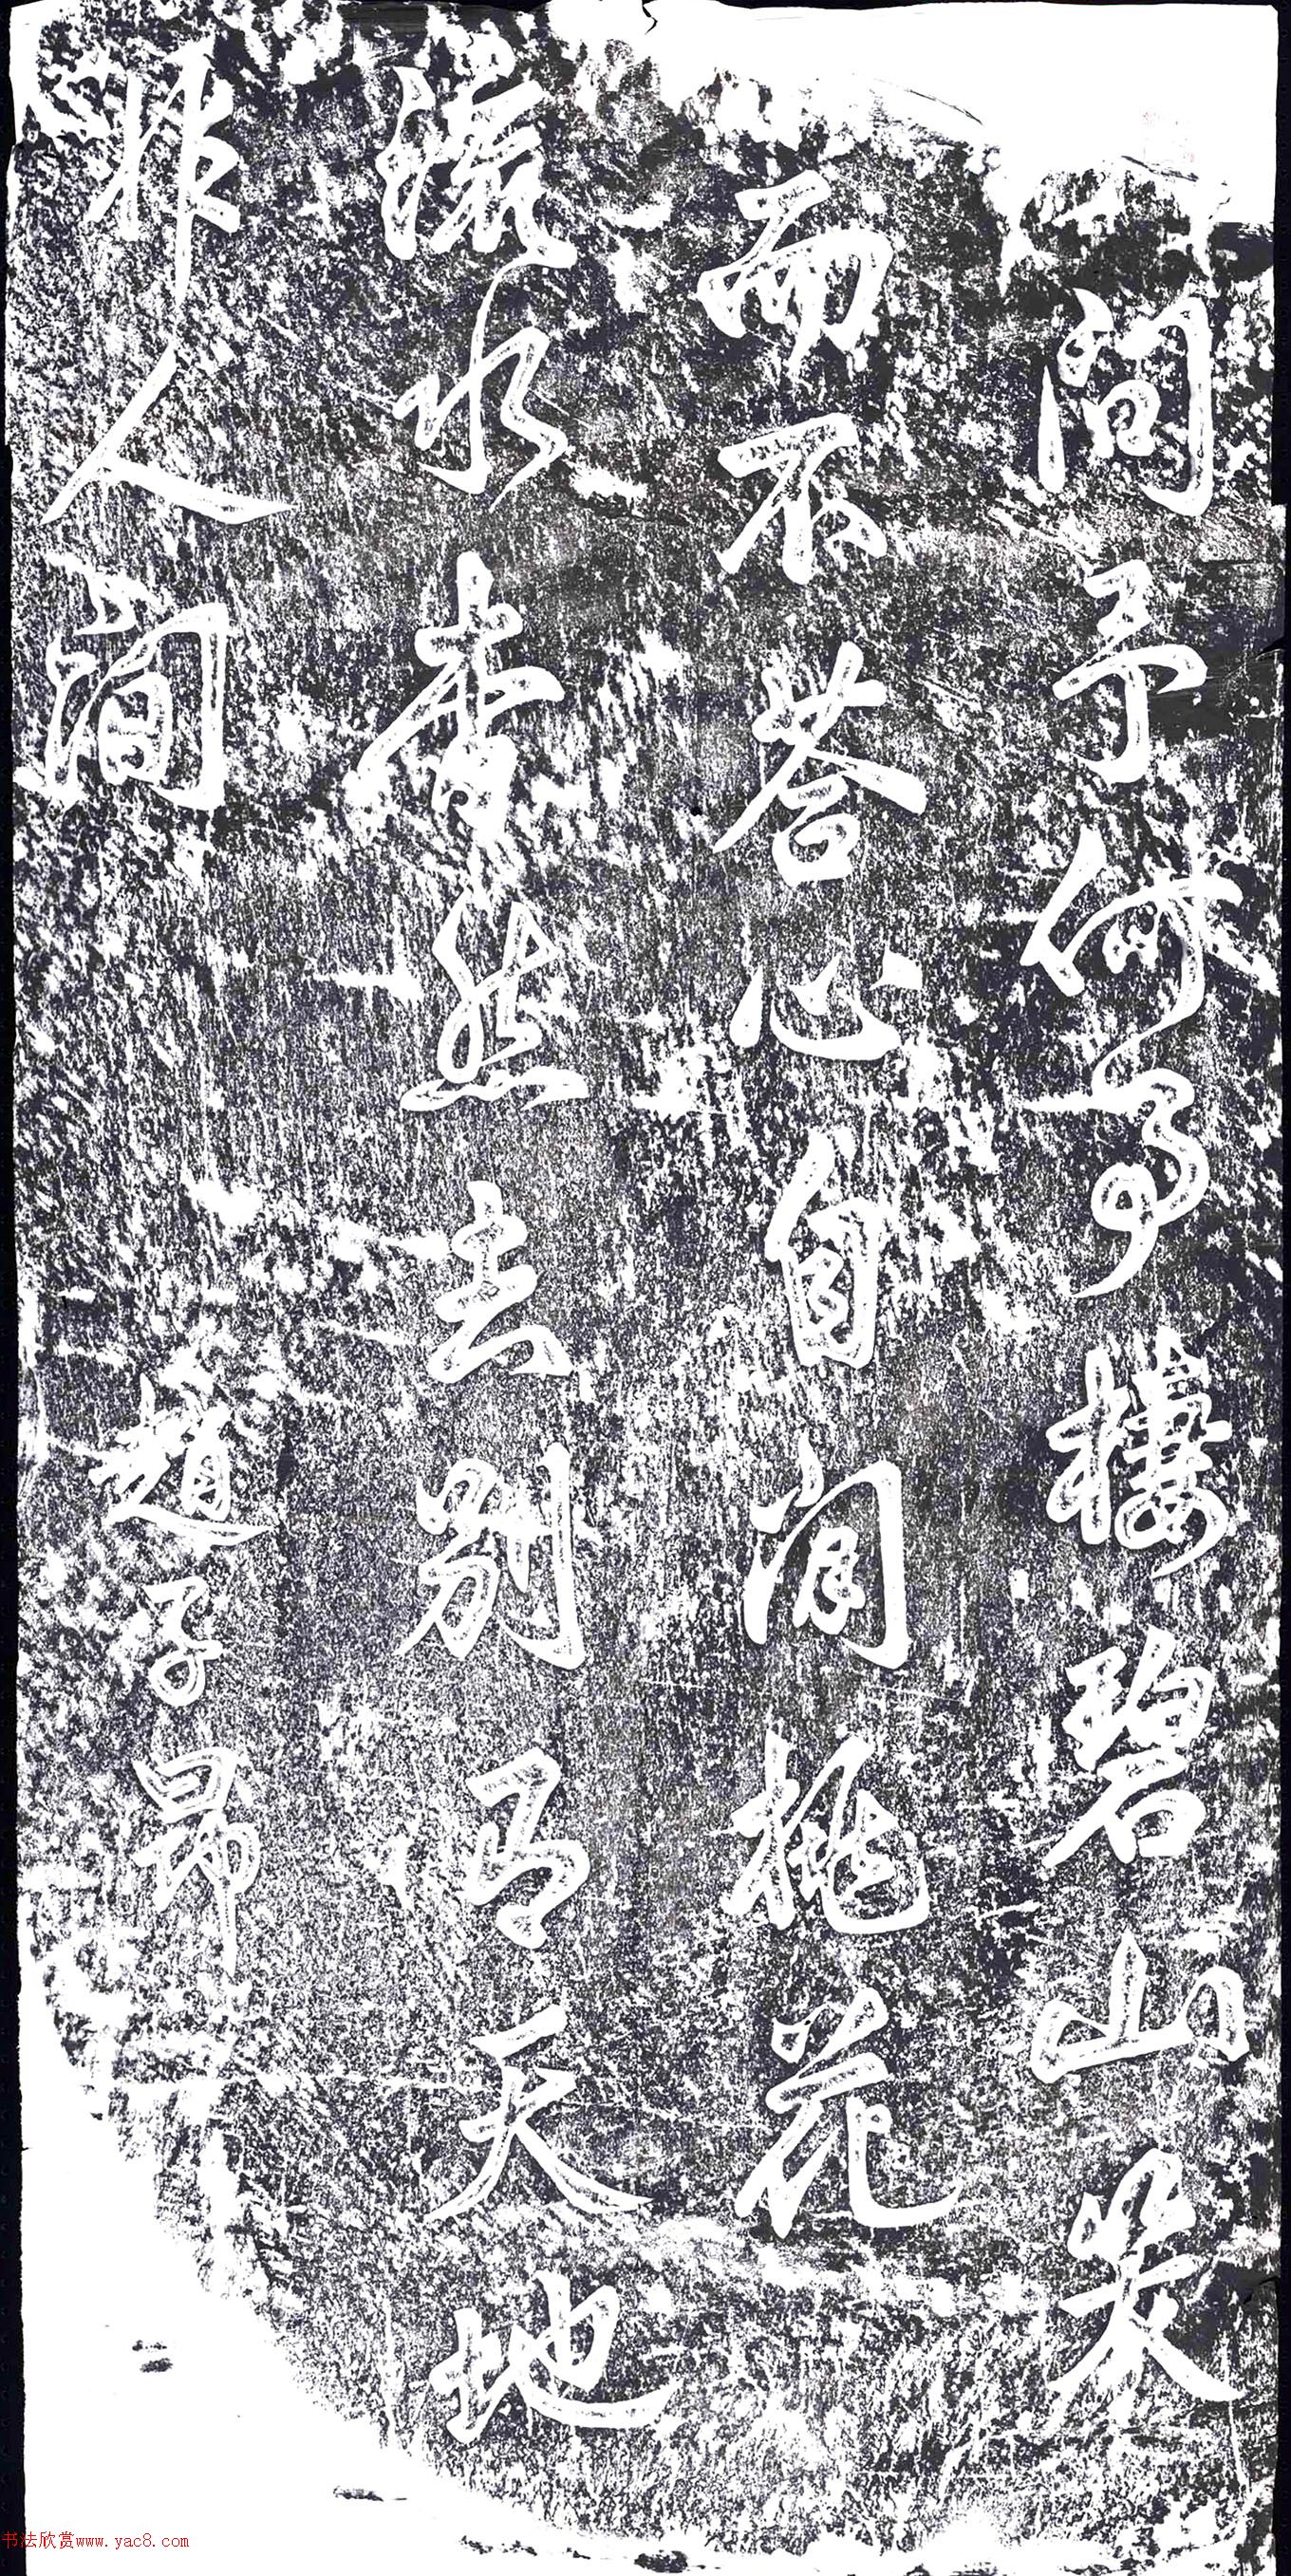 問予何事棲碧山笑
而不荅心自閑桃花
流水杳然去別有天地
非人間 趙子昂
书法欣赏www.yac8.com